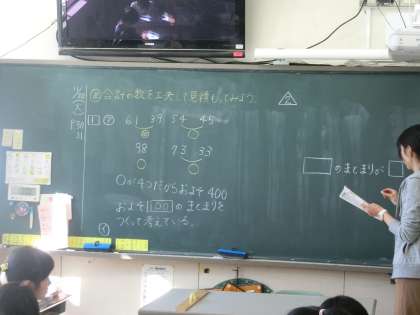 合計の数を工夫して見積もってみよう。
P30
31
1 ㋐ 61 39 54 45
98 73 33
○が4つだからおよそ400
およそ100のまとまりを
つくって考えている。
㋑
のまとまりが